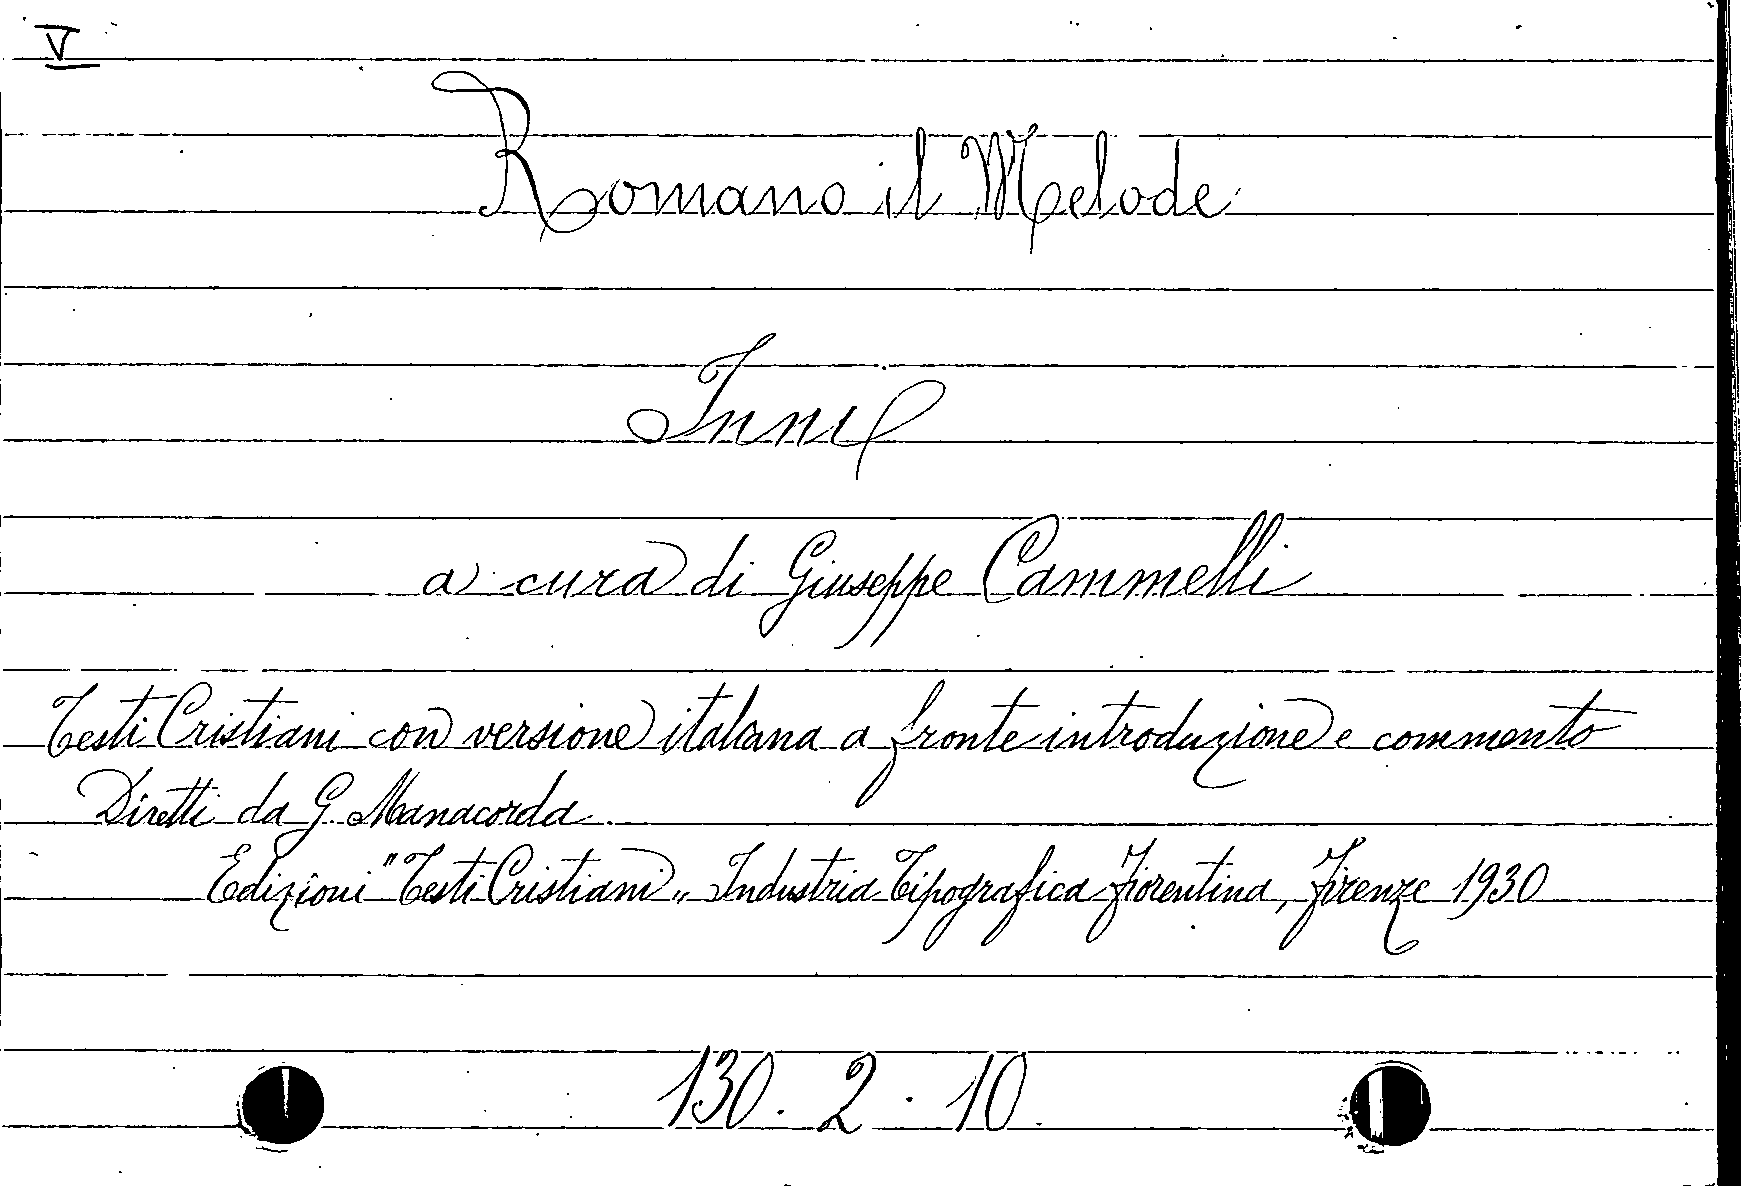 V
Romano il Melode
Inni
a cura di Giuseppe Cammelli
Testi Cristiani con versione italiana a fronte introduzione e commento
Diretti da G. Manacorda
Edizioni "Testi Cristiani„ Industria Tipografica Fiorentina, Firenze 1930
130. 2. 10.